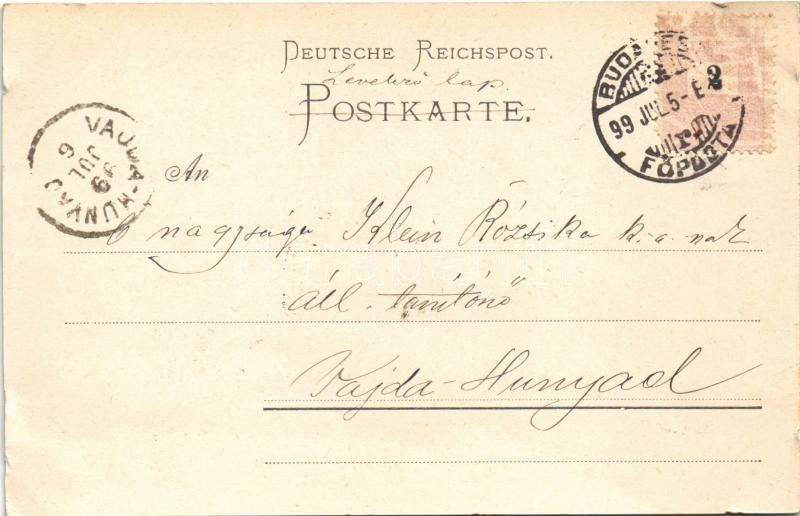 DEUTSCHE REICHSPOST.
Levelező lap.
POSTKARTE.
BUDAPEST
99 JUL 5 - E 2
FŐPOSTA
VAJDA-HUNYAD
99 JUL 6
An
ő nagysága Klein Rózsika k.a.-nak
áll. tanítónő
Vajda-Hunyad